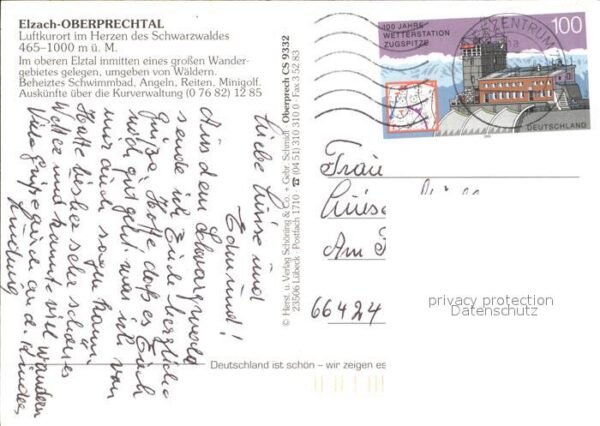 Elzach-OBERPRECHTAL
Luftkurort im Herzen des Schwarzwaldes
465–1000 m ü. M.
Im oberen Elztal inmitten eines großen Wander-
gebietes gelegen, umgeben von Wäldern.
Beheiztes Schwimmbad, Angeln, Reiten, Minigolf.
Auskünfte über die Kurverwaltung (0 76 82) 12 85
Liebe Luise und
Edmund!
Aus dem Schwarzwald
sende ich Euch herzliche
Grüße. Hoffe daß es Euch
noch gut geht was ich von
mir auch sagen kann.
Hatte bisher sehr schönes
Wetter und konnte viel wandern
Viele Grüße an d. Kinder
© Herst. u. Verlag Schöning & Co. + Gebr. Schmidt
23506 Lübeck · Postfach 1710 · ☎ (04 51) 310 310 0 · Fax 3 52 83
Oberprech CS 9332
100 JAHRE
WETTERSTATION
ZUGSPITZE
100
DEUTSCHLAND
ZENTRUM
Frau
Am
66424
privacy protection
Datenschutz
Deutschland ist schön – wir zeigen es